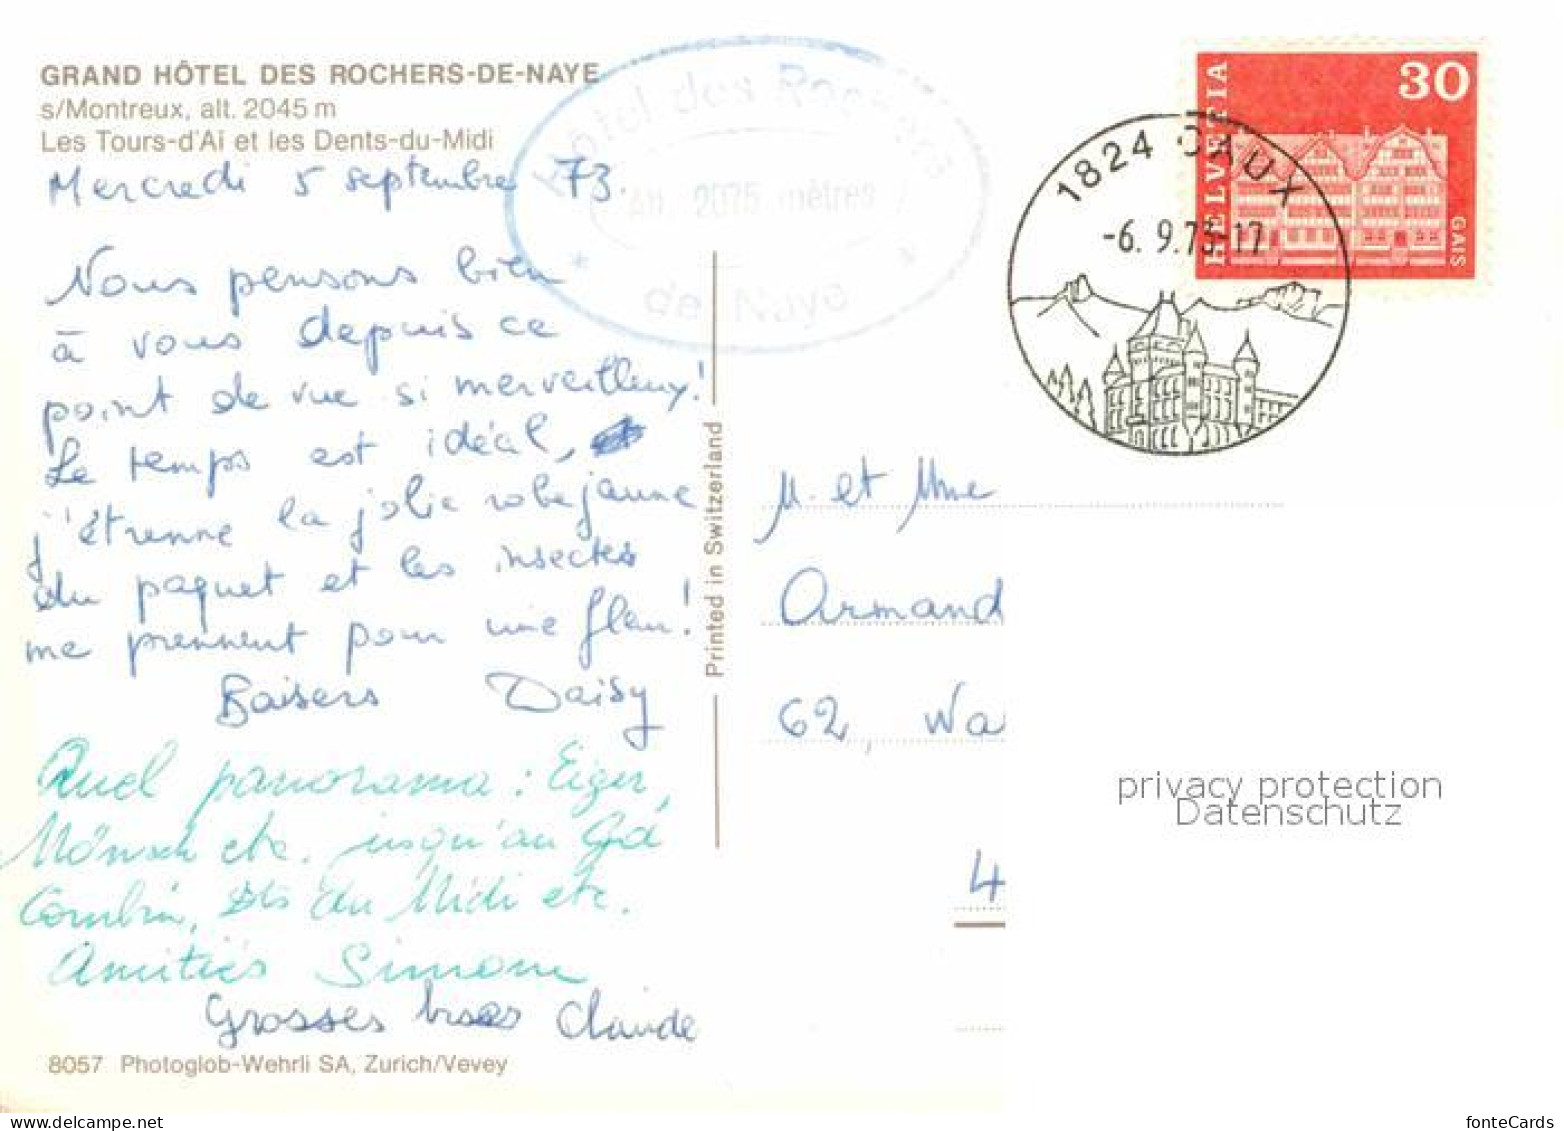 GRAND HÔTEL DES ROCHERS-DE-NAYE
s/Montreux, alt. 2045 m
Les Tours-d'Aï et les Dents-du-Midi
Mercredi 5 septembre 73.
Nous pensons bien
à vous depuis ce
point de vue si merveilleux!
Le temps est idéal,
j'étrenne la jolie robe jaune
du paquet et les insectes
me prennent pour une fleur!
Baisers Daisy
Quel panorama : Eiger,
Mönsch etc. jusqu'au Gd
Combin, Dts du Midi etc.
Amitiés Simone
Grosses bises Claude
8057 Photoglob-Wehrli SA, Zurich/Vevey
Printed in Switzerland
Hôtel des Rochers
Alt. 2075 mètres
* *
de Naye
1824 CAUX
-6. 9.73-17
HELVETIA
30
GAIS
M. et Mme
Armand
62, Wa
4
privacy protection
Datenschutz
fonteCards